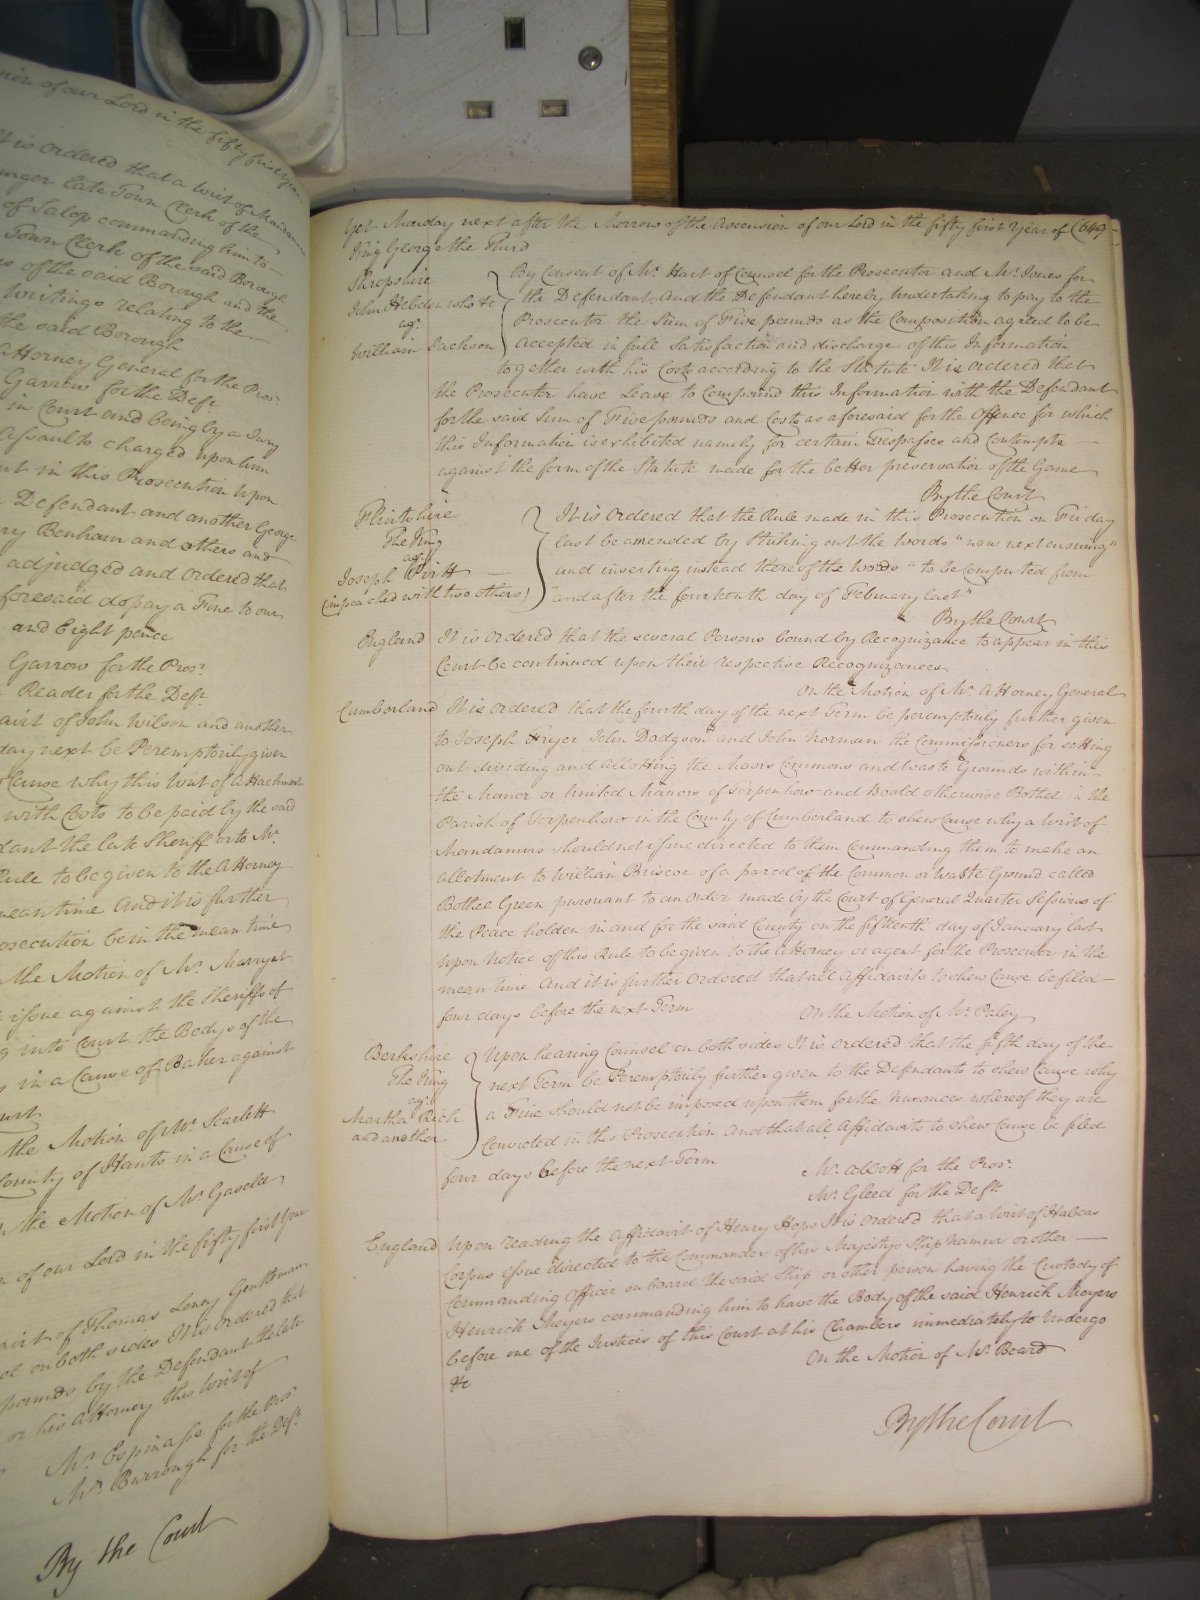 nion of our Lord in the fifty first Year
It is ordered that a Writ of Mandamus
nger late Town Clerk of the
of Salop commanding him to
Town Clerk of the said Borough
s of the said Borough and the
Writings relating to the
the said Borough
Attorney General for the Prosr
Garrow for the Deft
in Court and being by a Jury
Assault charged upon him
nt in this Prosecution upon
Defendant and another George
ry Benham and others and
adjudged and ordered that
foresaid do pay a Fine to our
and Eight pence
Garrow for the Prosr
Reader for the Deft
avit of John Wilson and another
day next be Peremptorily given
Cause why this Writ of Attachment
with Costs to be paid by the said
dant the late Sheriff or to Mr
Rule to be given to the Attorney
mean time And it is further
osecution be in the mean time
the Motion of Mr Marryat
issue against the Sheriffs of
g into Court the Bodys of the
s in a Cause of Baker against
ourt
the Motion of Mr Scarlett
County of Hants in a Cause of
the Motion of Mr Gaselee
n of our Lord in the fifty first Year
avit of Thomas Loney Gentleman
el on both sides It is ordered that
pounds by the Defendant the late
or his Attorney this Writ of
Mr Espinasse for the Prosr
Mr Burrough for the Deft
By the Court
Yet Monday next after the Morrow of the Ascension of our Lord in the fifty first Year of (649
King George the Third
Shropshire
John Hebden who &c
agt
William Jackson
By Consent of Mr Hart of Counsel for the Prosecutor and Mr Jones for
the Defendant And the Defendant hereby undertaking to pay to the
Prosecutor the Sum of Five pounds as the Composition agreed to be
accepted in full Satisfaction and discharge of this Information
together with his Costs according to the Statute It is ordered that
the Prosecutor have Leave to Compound this Information with the Defendant
for the said Sum of Five pounds and Costs as aforesaid for the Offence for which
this Information is exhibited namely for certain Trespasses and Contempts
against the form of the Statute made for the better preservation of the Game
By the Court
Flintshire
The King
agt
Joseph Piritt
(impeached with two others)
It is ordered that the Rule made in this Prosecution on Friday
last be amended by Striking out the Words "now next ensuing"
and inserting instead thereof the Words "to be Computed from
"and after the fourteenth day of February last"
By the Court
England It is ordered that the several Persons bound by Recognizance to appear in this
Court be continued upon their respective Recognizances
On the Motion of Mr Attorney General
Cumberland It is ordered that the fourth day of the next Term be peremptorily further given
to Joseph Fryer John Dodgson and John Norman the Commissioners for setting
out dividing and allotting the Moors Commons and Waste Grounds within
the Manor or United Manors of Torpenhow and Boald otherwise Bothel in the
Parish of Torpenhow in the County of Cumberland to shew Cause why a Writ of
Mandamus should not issue directed to them Commanding them to make an
allotment to William Briscoe of a parcel of the Common or Waste Ground called
Bothel Green pursuant to an Order made by the Court of General Quarter Sessions of
the Peace holden in and for the said County on the fifteenth day of January last
upon Notice of this Rule to be given to the Attorney or agent for the Prosecutor in the
mean time And it is further Ordered that all Affidavits to shew Cause be filed
four days before the next Term
On the Motion of Mr Raley
Berkshire
The King
agt
Martha Rich
and another
Upon hearing Counsel on both sides It is ordered that the fifth day of the
next Term be Peremptorily further given to the Defendants to shew Cause why
a Fine should not be imposed upon them for the Nusances whereof they are
Convicted in this Prosecution And that all Affidavits to shew Cause be filed
four days before the next Term
Mr Abbott for the Prosr
Mr Gleed for the Deft
England Upon reading the Affidavit of Henry Hops It is ordered that a Writ of Habeas
Corpus issue directed to the Commander of his Majestys Ship Namur or other
Commanding Officer on board the said Ship or other person having the Custody of
Henrich Meyers commanding him to have the Body of the said Henrich Meyers
before one of the Justices of this Court at his Chambers immediately to Undergo
&c
On the Motion of Mr Beard
By the Court